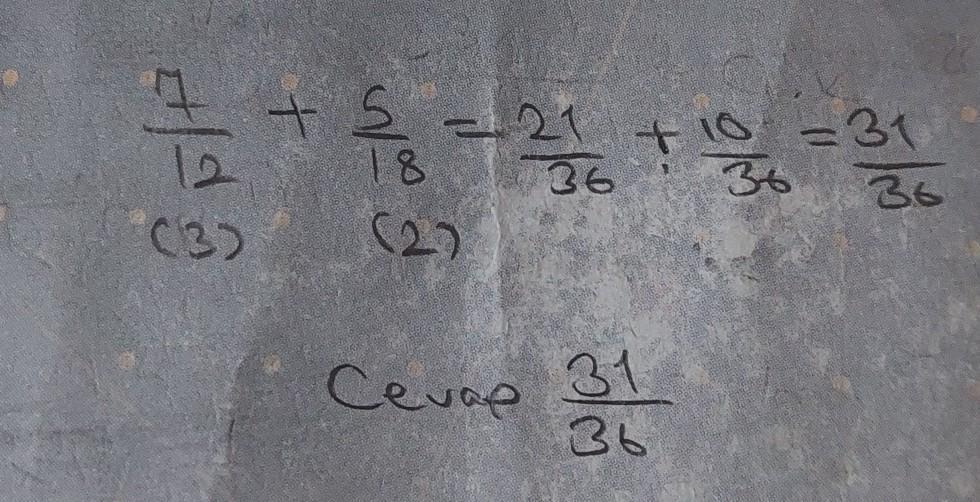 7/12 + 5/18 = 21/36 + 10/36 = 31/36
(3) (2)
Cevap 31/36